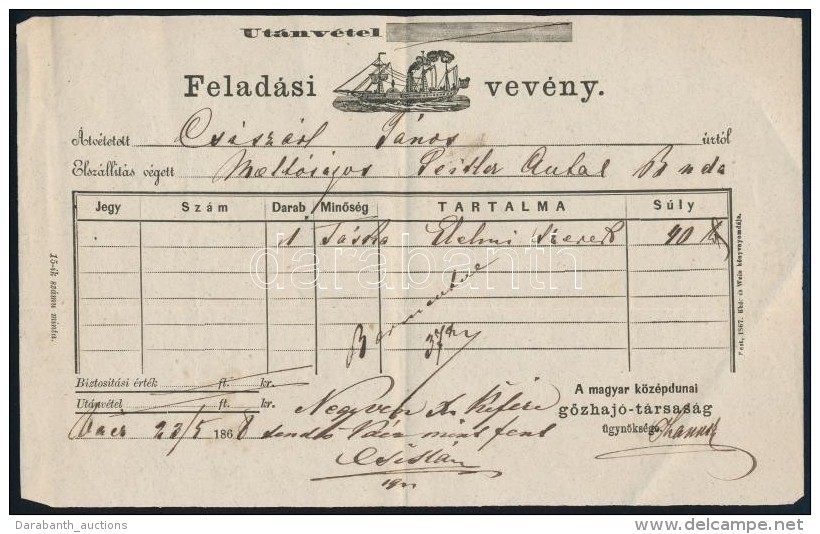 Utánvétel
Feladási vevény.
Átvétetett Császár János úrtól
Elszállitás végett Antal Buda
Jegy Szám Darab Minőség TARTALMA Súly
1 Táska Élelmi Szerek 40
Bérmentve
37
15-ik számu minta.
Pest, 1867. Khór és Wein könyvnyomdája.
Biztositási érték ft. kr.
Utánvétel ft. kr.
23/5 1868
Negyven
mint fent
A magyar középdunai
gőzhajó-társaság
ügynöksége.
darabanth
Darabanth_auctions
www.delcampe.net